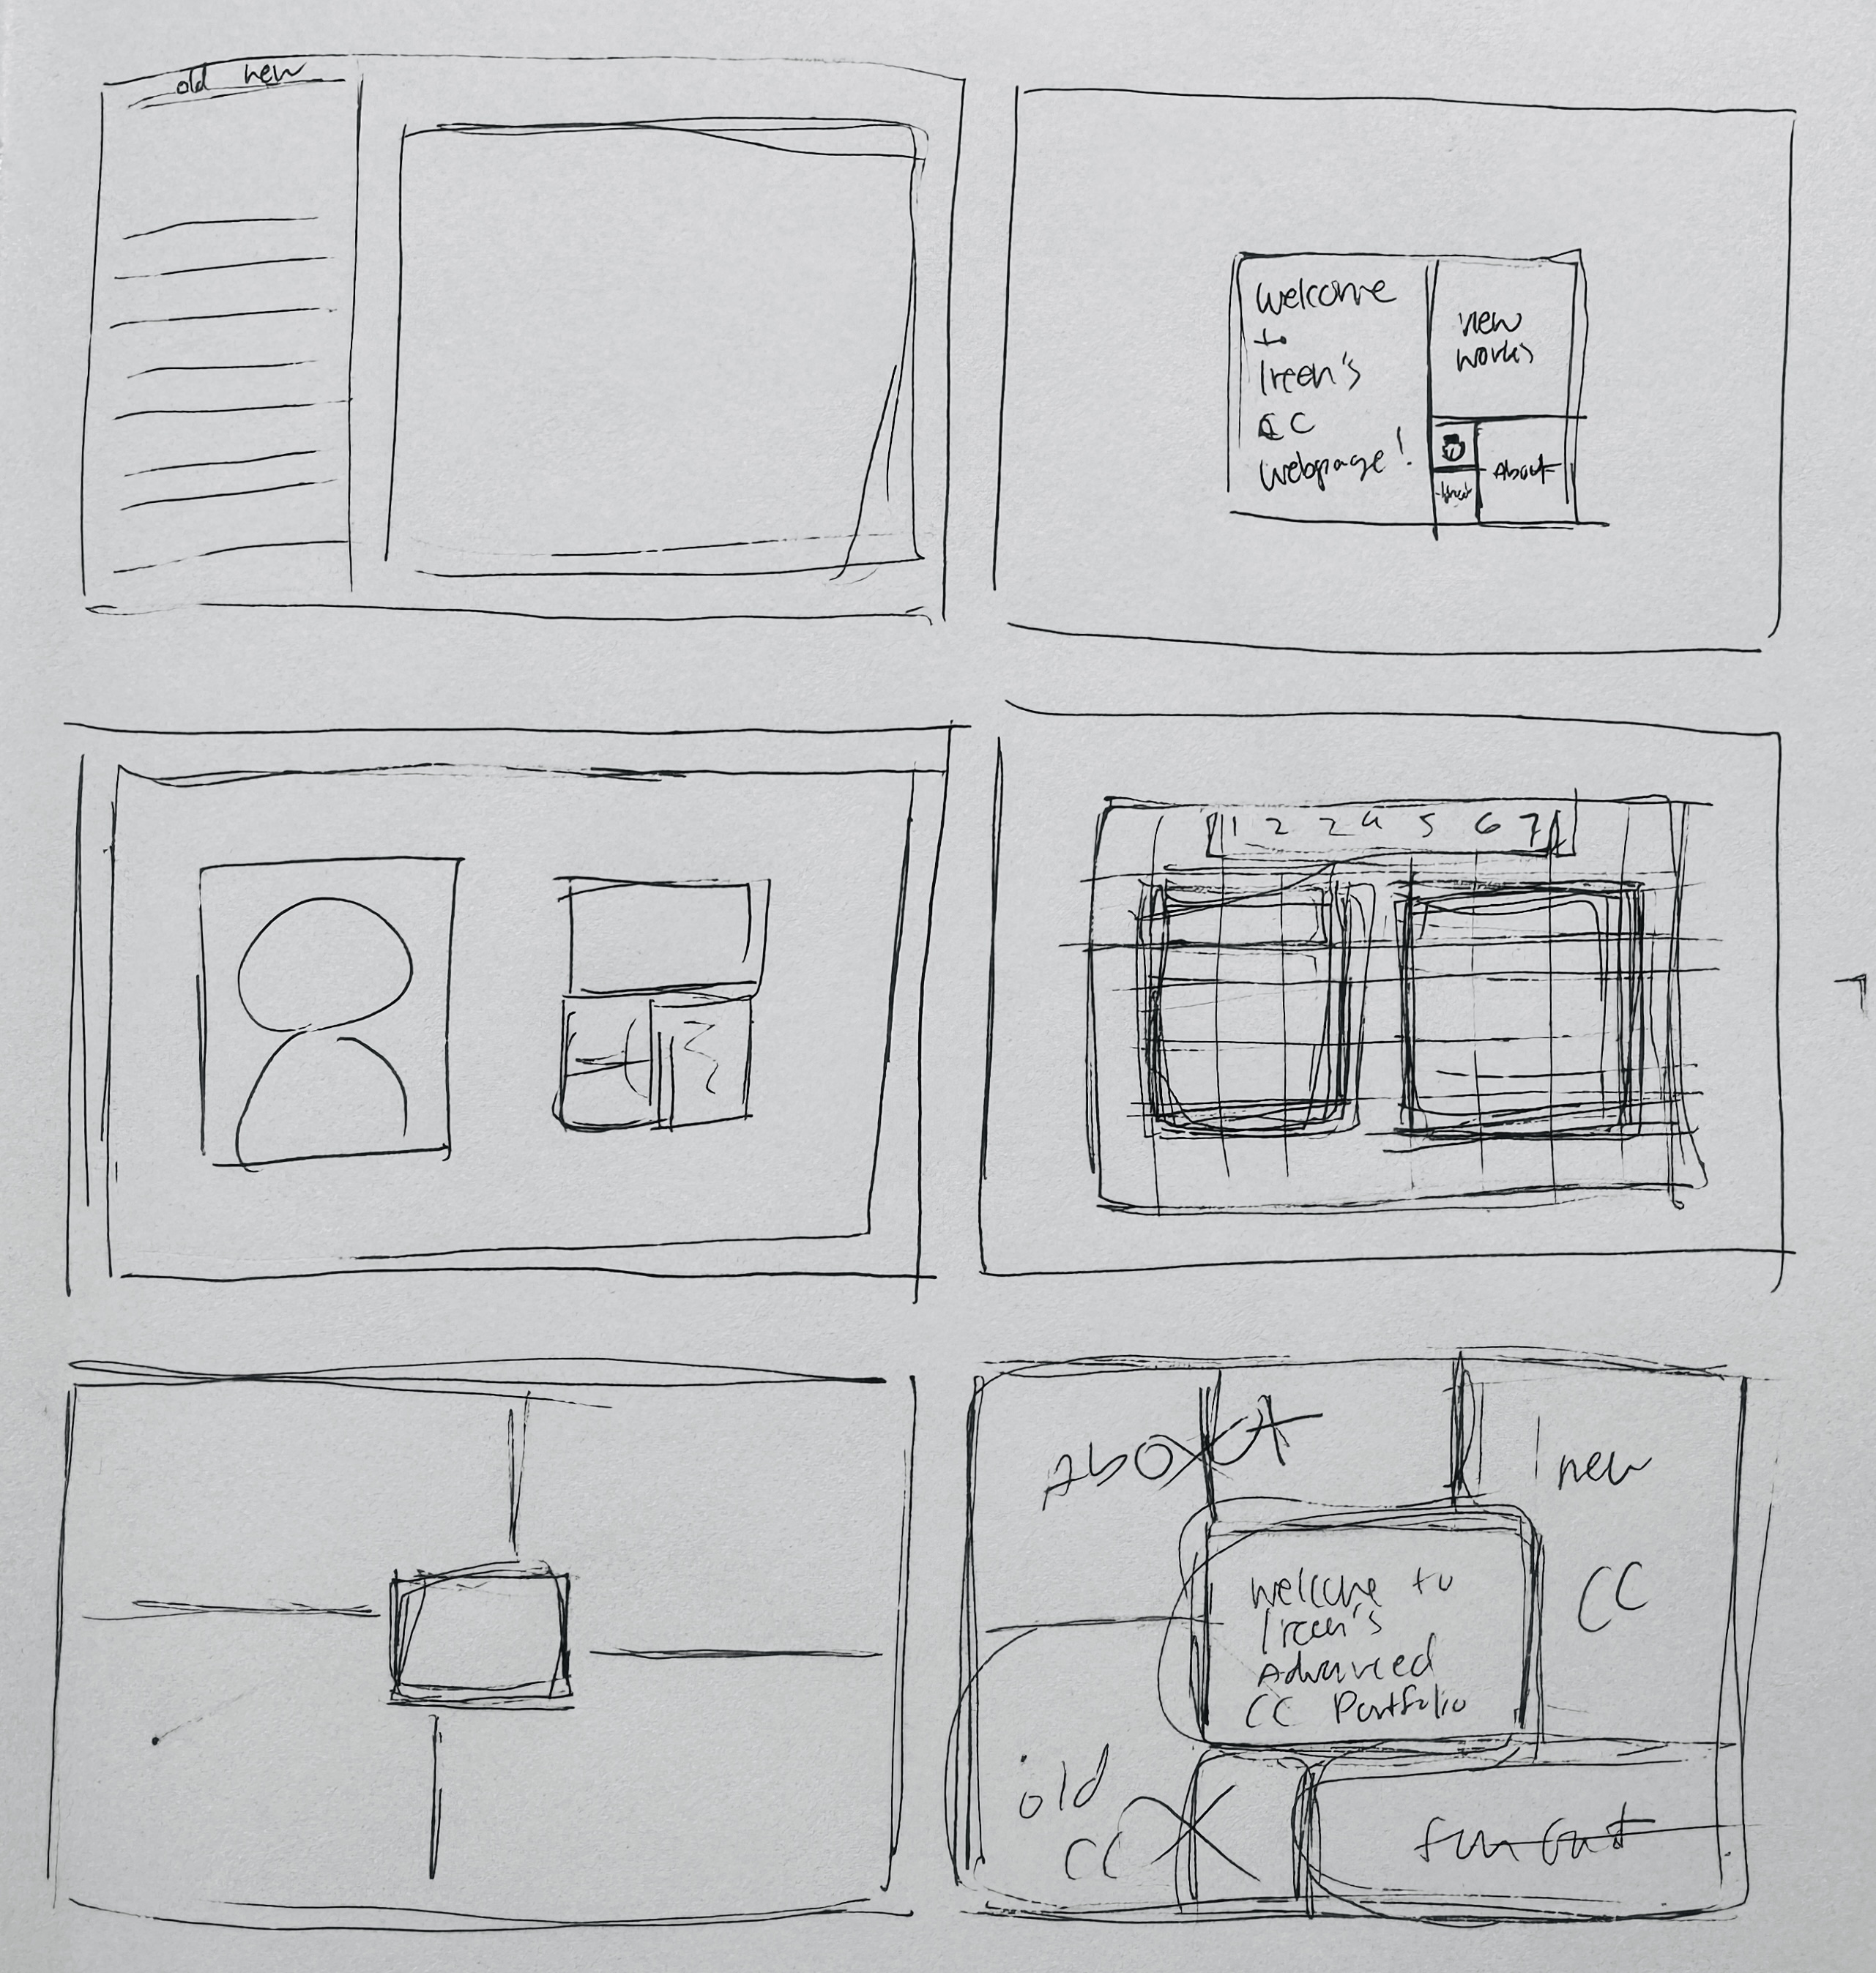 old new
Welcome
to
Ireen's
CC
Webpage!
View
works
About
1 2 2 4 5 6 7
About
new
CC
Welcome to
Ireen's
Advanced
CC Portfolio
old
CC